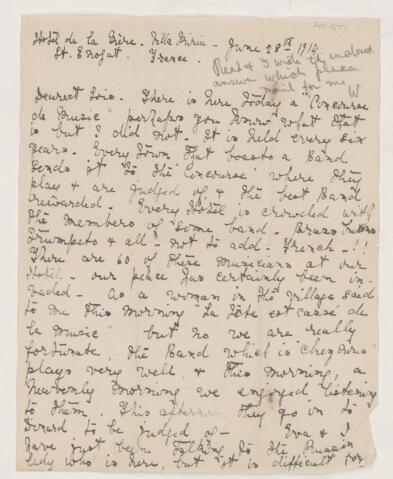 Hotel de la Mère. Villa Miria - June 28th 1914
St. Enogat. France.
Read & I wrote the enclosed
answer which please
mail for me W
Dearest Lois. There is here today a "Concourse
de Music" perhaps you know what that
is but I did not. It is held every six
years. Every town that boasts a Band
sends it to the "concourse" where they
play & are judged of & the best Band
rewarded. Every Hotel is crowded with
the members of some band - Brass Buttons
trumpets & all - not to add - French - !!
There are 60 of these musicians at our
Hotel - our peace has certainly been in-
vaded - as a woman in the village said
to me this morning "La tête est cassé de
la music" but no we are really
fortunate, the Band which is "chez
plays very well, & this morning, a
heavenly morning we enjoyed listening
to them. This afternoon they go in to
Dinard to be judged of - Eva & I
have just been talking to the Russian
lady who is here, but it is difficult for